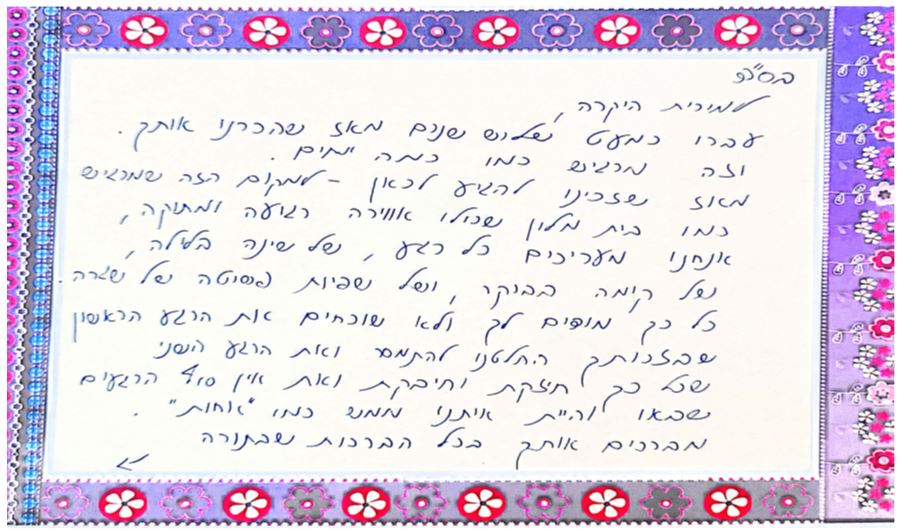 בס"ד
למירית היקרה,
עברו כמעט שלוש שנים מאז שהכרנו אותך.
וזה מרגיש כמו כמה ימים.
מאז שזכינו להגיע לכאן - למקום הזה שמרגיש
כמו בית מלון שכולו אווירה רגועה ומתוקה,
אנחנו מעריכים כל רגע, של שינה בלילה,
של קימה בבוקר, ושל שפיות פשוטה של שגרה
כל כך מודים לך ולא שוכחים את הרגע הראשון
שבזכותך החלטנו להתמסר ואת הרגע השני
שכל כך חיזקת וחיבקת ואת אין סוף הרגעים
שבאו והיית איתנו ממש כמו "אחות".
מברכים אותך בכל הברכות שבתורה